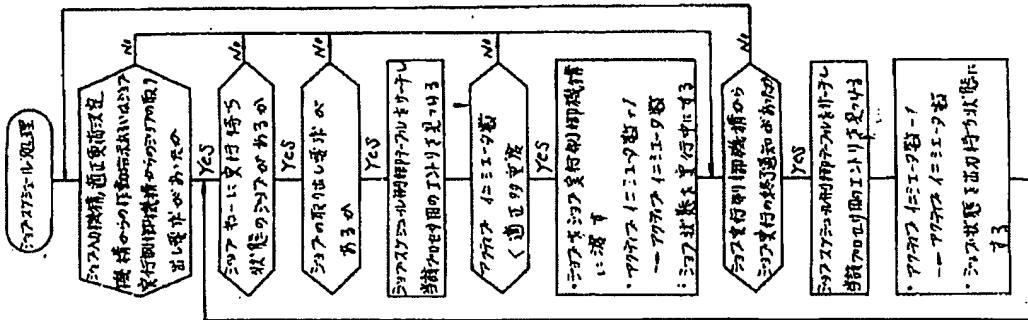 ジョブスケジュール処理
ジョブ入力機構、適正多重度決定
機構からの作動指示あるいはジョブ
実行制御機構からのジョブの取り
出し要求があったか
No
YES
ジョブキューに実行待ち
状態のジョブがあるか
No
YES
ジョブの取り出し要求が
あるか
No
YES
ジョブスケジュール制御テーブルをサーチし
当該プロセサ用のエントリを見つける
アクティブ イニシエータ数
<適正多重度
No
YES
・ジョブをジョブ実行制御機構
に渡す
・アクティブ イニシエータ数+1
→アクティブ イニシエータ数
・ジョブ状態を実行中にする
ジョブ実行制御機構から
ジョブ実行の終了通知があったか
No
YES
ジョブスケジュール制御テーブルをサーチし
当該プロセサ用のエントリを見つける
・アクティブ イニシエータ数-1
→アクティブ イニシエータ数
・ジョブ状態を出力待ち状態に
する